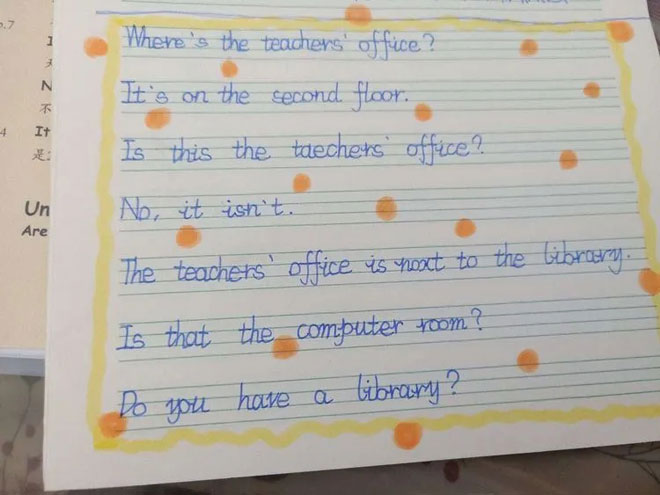 Where's the teachers' office?
It's on the second floor.
Is this the taechers' office?
No, it isn't.
The teachers' office is noxt to the library.
Is that the computer room?
Do you have a library?
p.7
N
不
4 It
是
Un
Are